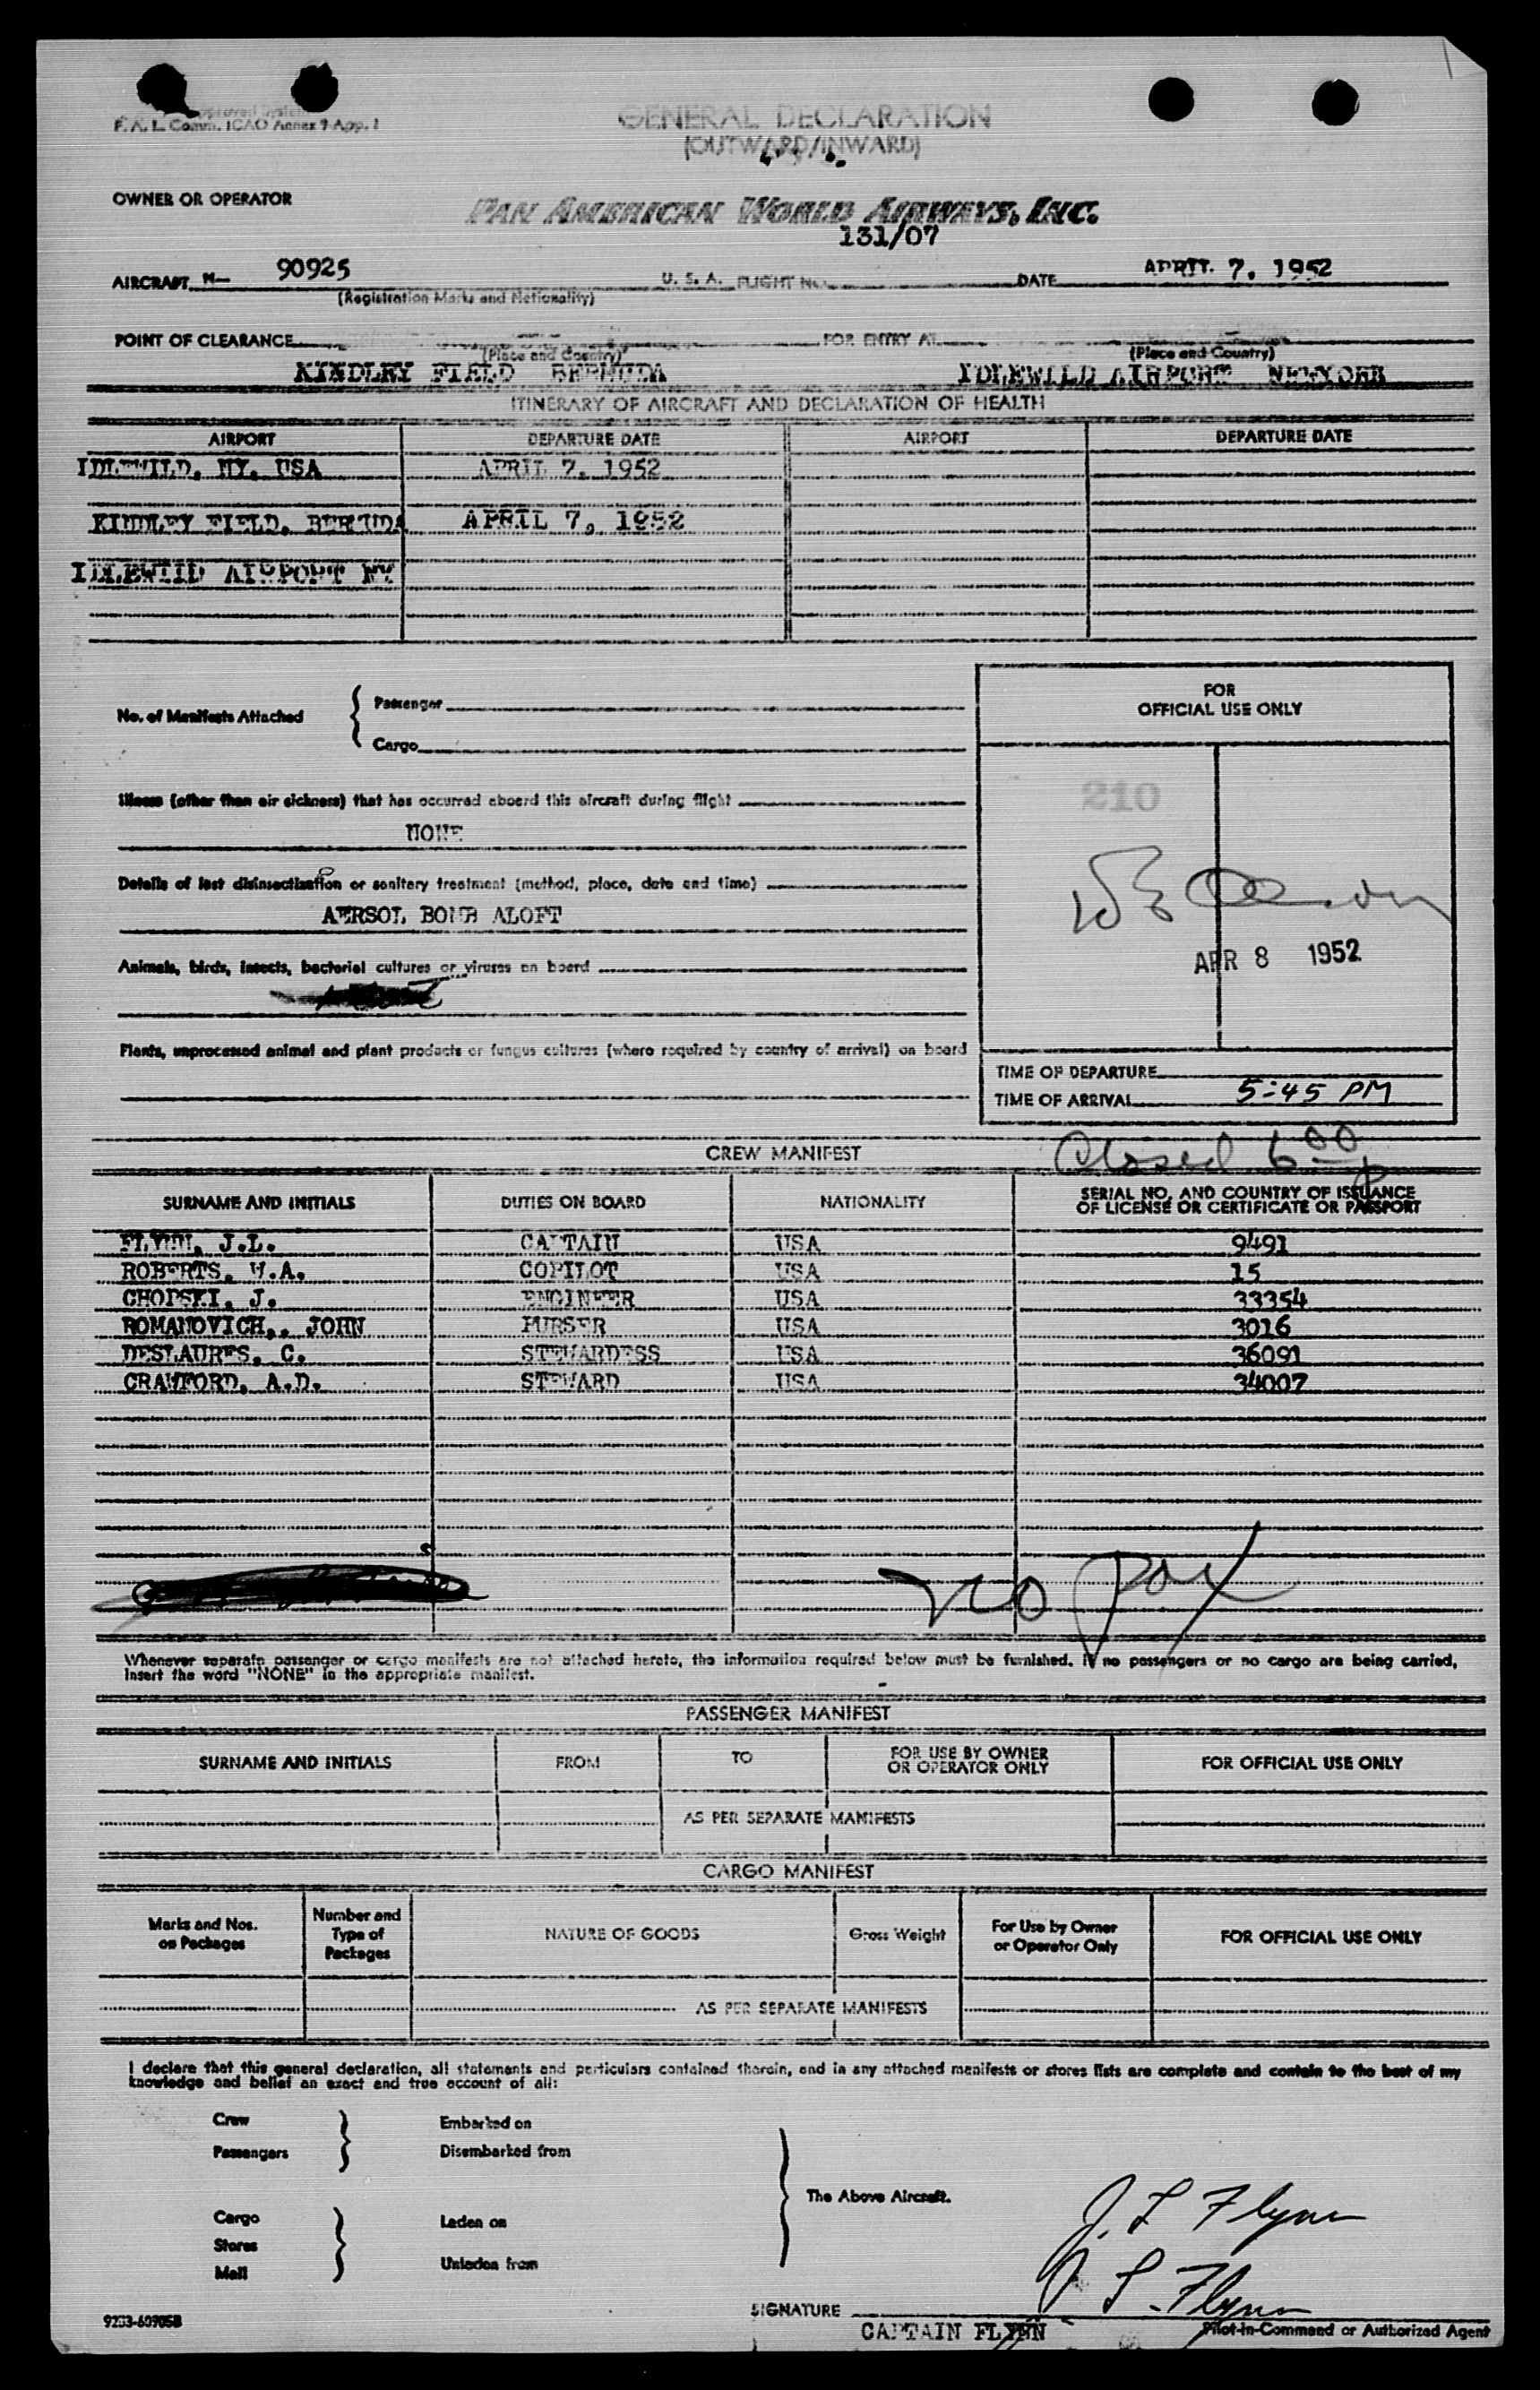 F. A. L. Comm. ICAO Annex 9 App. 1
GENERAL DECLARATION
(OUTWARD/INWARD)
OWNER OR OPERATOR PAN AMERICAN WORLD AIRWAYS, INC.
131/07
AIRCRAFT N- 90925 U. S. A. FLIGHT No. DATE APRIL 7, 1952
(Registration Marks and Nationality)
POINT OF CLEARANCE FOR ENTRY AT
(Place and Country) (Place and Country)
KINDLEY FIELD BERMUDA IDLEWILD AIRPORT NEWYORK
ITINERARY OF AIRCRAFT AND DECLARATION OF HEALTH
AIRPORT DEPARTURE DATE AIRPORT DEPARTURE DATE
IDLEWILD, NY, USA APRIL 7, 1952
KINDLEY FIELD, BERMUDA APRIL 7, 1952
IDLEWILD AIRPORT NY
No. of Manifests Attached { Passenger
Cargo
FOR
OFFICIAL USE ONLY
210
Illness (other than air sickness) that has occurred aboard this aircraft during flight
NONE
Details of last disinsectization or sanitary treatment (method, place, date and time)
AERSOL BOMB ALOFT
APR 8 1952
Animals, birds, insects, bacterial cultures or viruses on board
Plants, unprocessed animal and plant products or fungus cultures (where required by country of arrival) on board
TIME OF DEPARTURE
TIME OF ARRIVAL 5:45 PM
Closed 6 00 P
CREW MANIFEST
SURNAME AND INITIALS DUTIES ON BOARD NATIONALITY SERIAL NO. AND COUNTRY OF ISSUANCE
OF LICENSE OR CERTIFICATE OR PASSPORT
FLYNN, J.L. CAPTAIN USA 9491
ROBERTS, W.A. COPILOT USA 15
CHOPSKI, J. ENGINEER USA 33354
ROMANOVICH,. JOHN PURSER USA 3016
DESLAURES, C. STEWARDESS USA 36091
CRAWFORD, A.D. STEWARD USA 34007
No pax
Whenever separate passenger or cargo manifests are not attached hereto, the information required below must be furnished. If no passengers or no cargo are being carried,
insert the word "NONE" in the appropriate manifest.
PASSENGER MANIFEST
SURNAME AND INITIALS FROM TO FOR USE BY OWNER
OR OPERATOR ONLY FOR OFFICIAL USE ONLY
AS PER SEPARATE MANIFESTS
CARGO MANIFEST
Marks and Nos.
on Packages Number and
Type of
Packages NATURE OF GOODS Gross Weight For Use by Owner
or Operator Only FOR OFFICIAL USE ONLY
AS PER SEPARATE MANIFESTS
I declare that this general declaration, all statements and particulars contained therein, and in any attached manifests or stores lists are complete and contain to the best of my
knowledge and belief an exact and true account of all:
Crew Embarked on
Passengers Disembarked from
The Above Aircraft.
Cargo Laden on
Stores
Mail Unladen from
J. L Flynn
J L. Flynn
SIGNATURE
CAPTAIN FLYNN Pilot-in-Command or Authorized Agent
9233-60905B